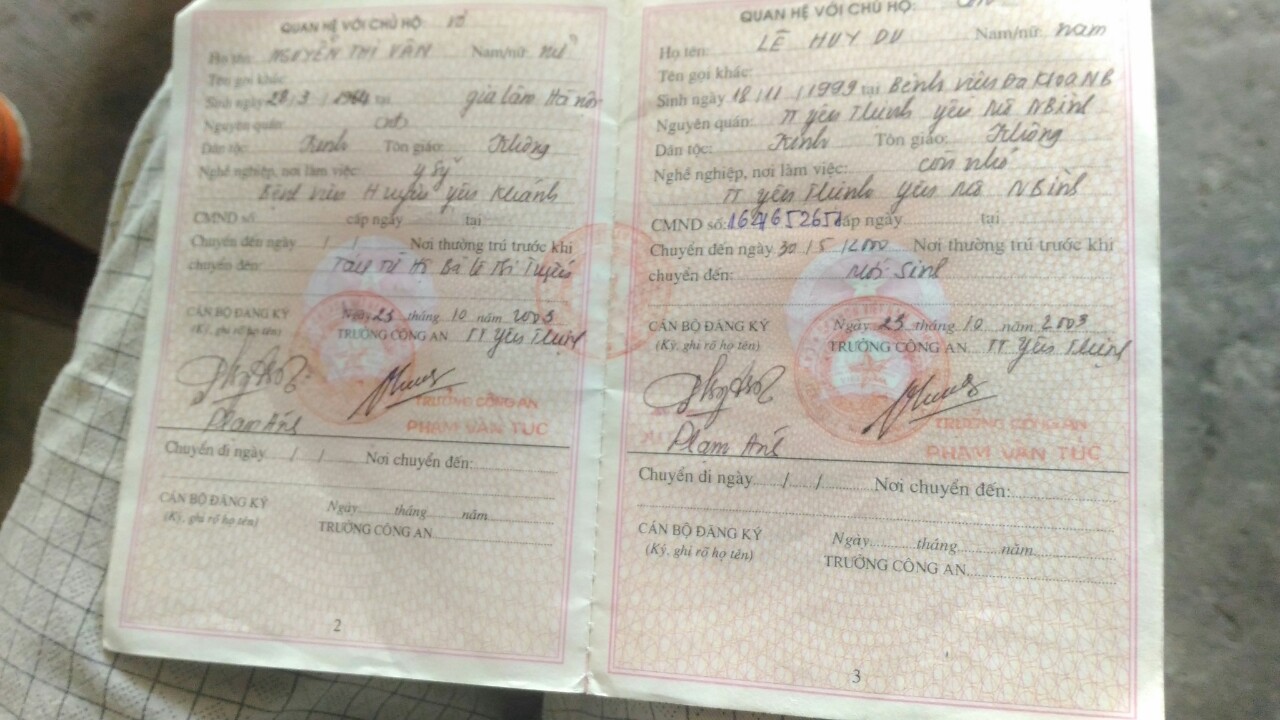 QUAN HỆ VỚI CHỦ HỘ: Vợ
Họ tên: NGUYỄN THỊ VÂN Nam/nữ: nữ
Tên gọi khác:
Sinh ngày 28/3/1964 tại gia lâm Hà nội
Nguyên quán:
Dân tộc: Kinh Tôn giáo: Không
Nghề nghiệp, nơi làm việc: y sỹ
Bệnh viện Huyện yên Khánh
CMND số: cấp ngày tại
Chuyển đến ngày / / Nơi thường trú trước khi
chuyển đến: Tác từ Hộ Bà lê thị Tuyến
CÁN BỘ ĐĂNG KÝ Ngày 23 tháng 10 năm 2003
(Ký, ghi rõ họ tên) TRƯỞNG CÔNG AN TT Yên Thịnh
TRƯỞNG CÔNG AN
Phạm PHẠM VĂN TÚC
Chuyển đi ngày / / Nơi chuyển đến:
CÁN BỘ ĐĂNG KÝ Ngày tháng năm
(Ký, ghi rõ họ tên) TRƯỞNG CÔNG AN
2
QUAN HỆ VỚI CHỦ HỘ: Con
Họ tên: LÊ HUY DU Nam/nữ: nam
Tên gọi khác:
Sinh ngày 18/11/1999 tại Bệnh viện Đa Khoa NB
Nguyên quán: TT yên Thịnh yên Mô NBình
Dân tộc: Kinh Tôn giáo: Không
Nghề nghiệp, nơi làm việc: còn nhỏ
TT yên Thịnh yên Mô NBình
CMND số: cấp ngày tại
Chuyển đến ngày 30/5/2000 Nơi thường trú trước khi
chuyển đến: Mới Sinh
CÁN BỘ ĐĂNG KÝ Ngày 23 tháng 10 năm 2003
(Ký, ghi rõ họ tên) TRƯỞNG CÔNG AN TT Yên Thịnh
TRƯỞNG CÔNG AN
Phạm PHẠM VĂN TÚC
Chuyển đi ngày / / Nơi chuyển đến:
CÁN BỘ ĐĂNG KÝ Ngày tháng năm
(Ký, ghi rõ họ tên) TRƯỞNG CÔNG AN
3